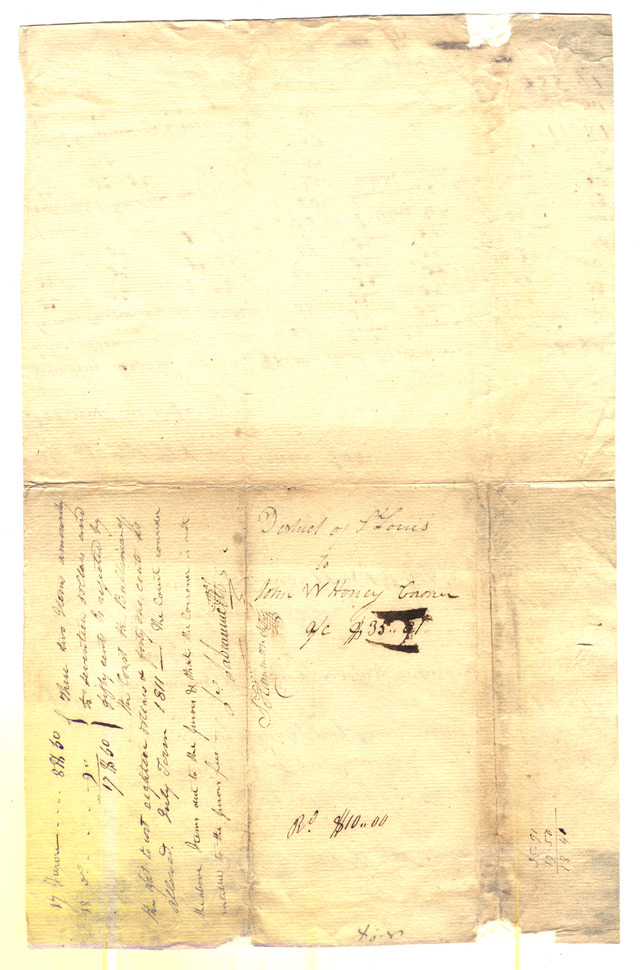 District of St Louis
to
John W Honey Coroner
a/c $35..91
S Hammond
Rd $10..00
17 Juror - - - - 8$50
18 Do - - - - 9"
17$50
These two Items amounting
to seventeen dollars and
fifty cents is rejected by
the Court the Ballance
to wit eighteen dollars & forty one cents is
allowed. July Term 1811 — The Court consider
the above Items due to the jurors & that the Coroner is not
to the jurors fees —
35.91
17.50
18.41